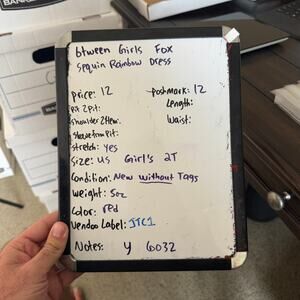 btween Girls Fox
Sequin Rainbow Dress
Price: 12
Poshmark: 12
Pit 2 Pit:
Length:
Shoulder 2 Hem:
Waist:
Sleeve from Pit:
Stretch: Yes
Size: US Girl's 2T
Condition: New Without Tags
Weight: 5oz
Color: red
Vendoo Label: JTC1
Notes: Y 6032
BANK